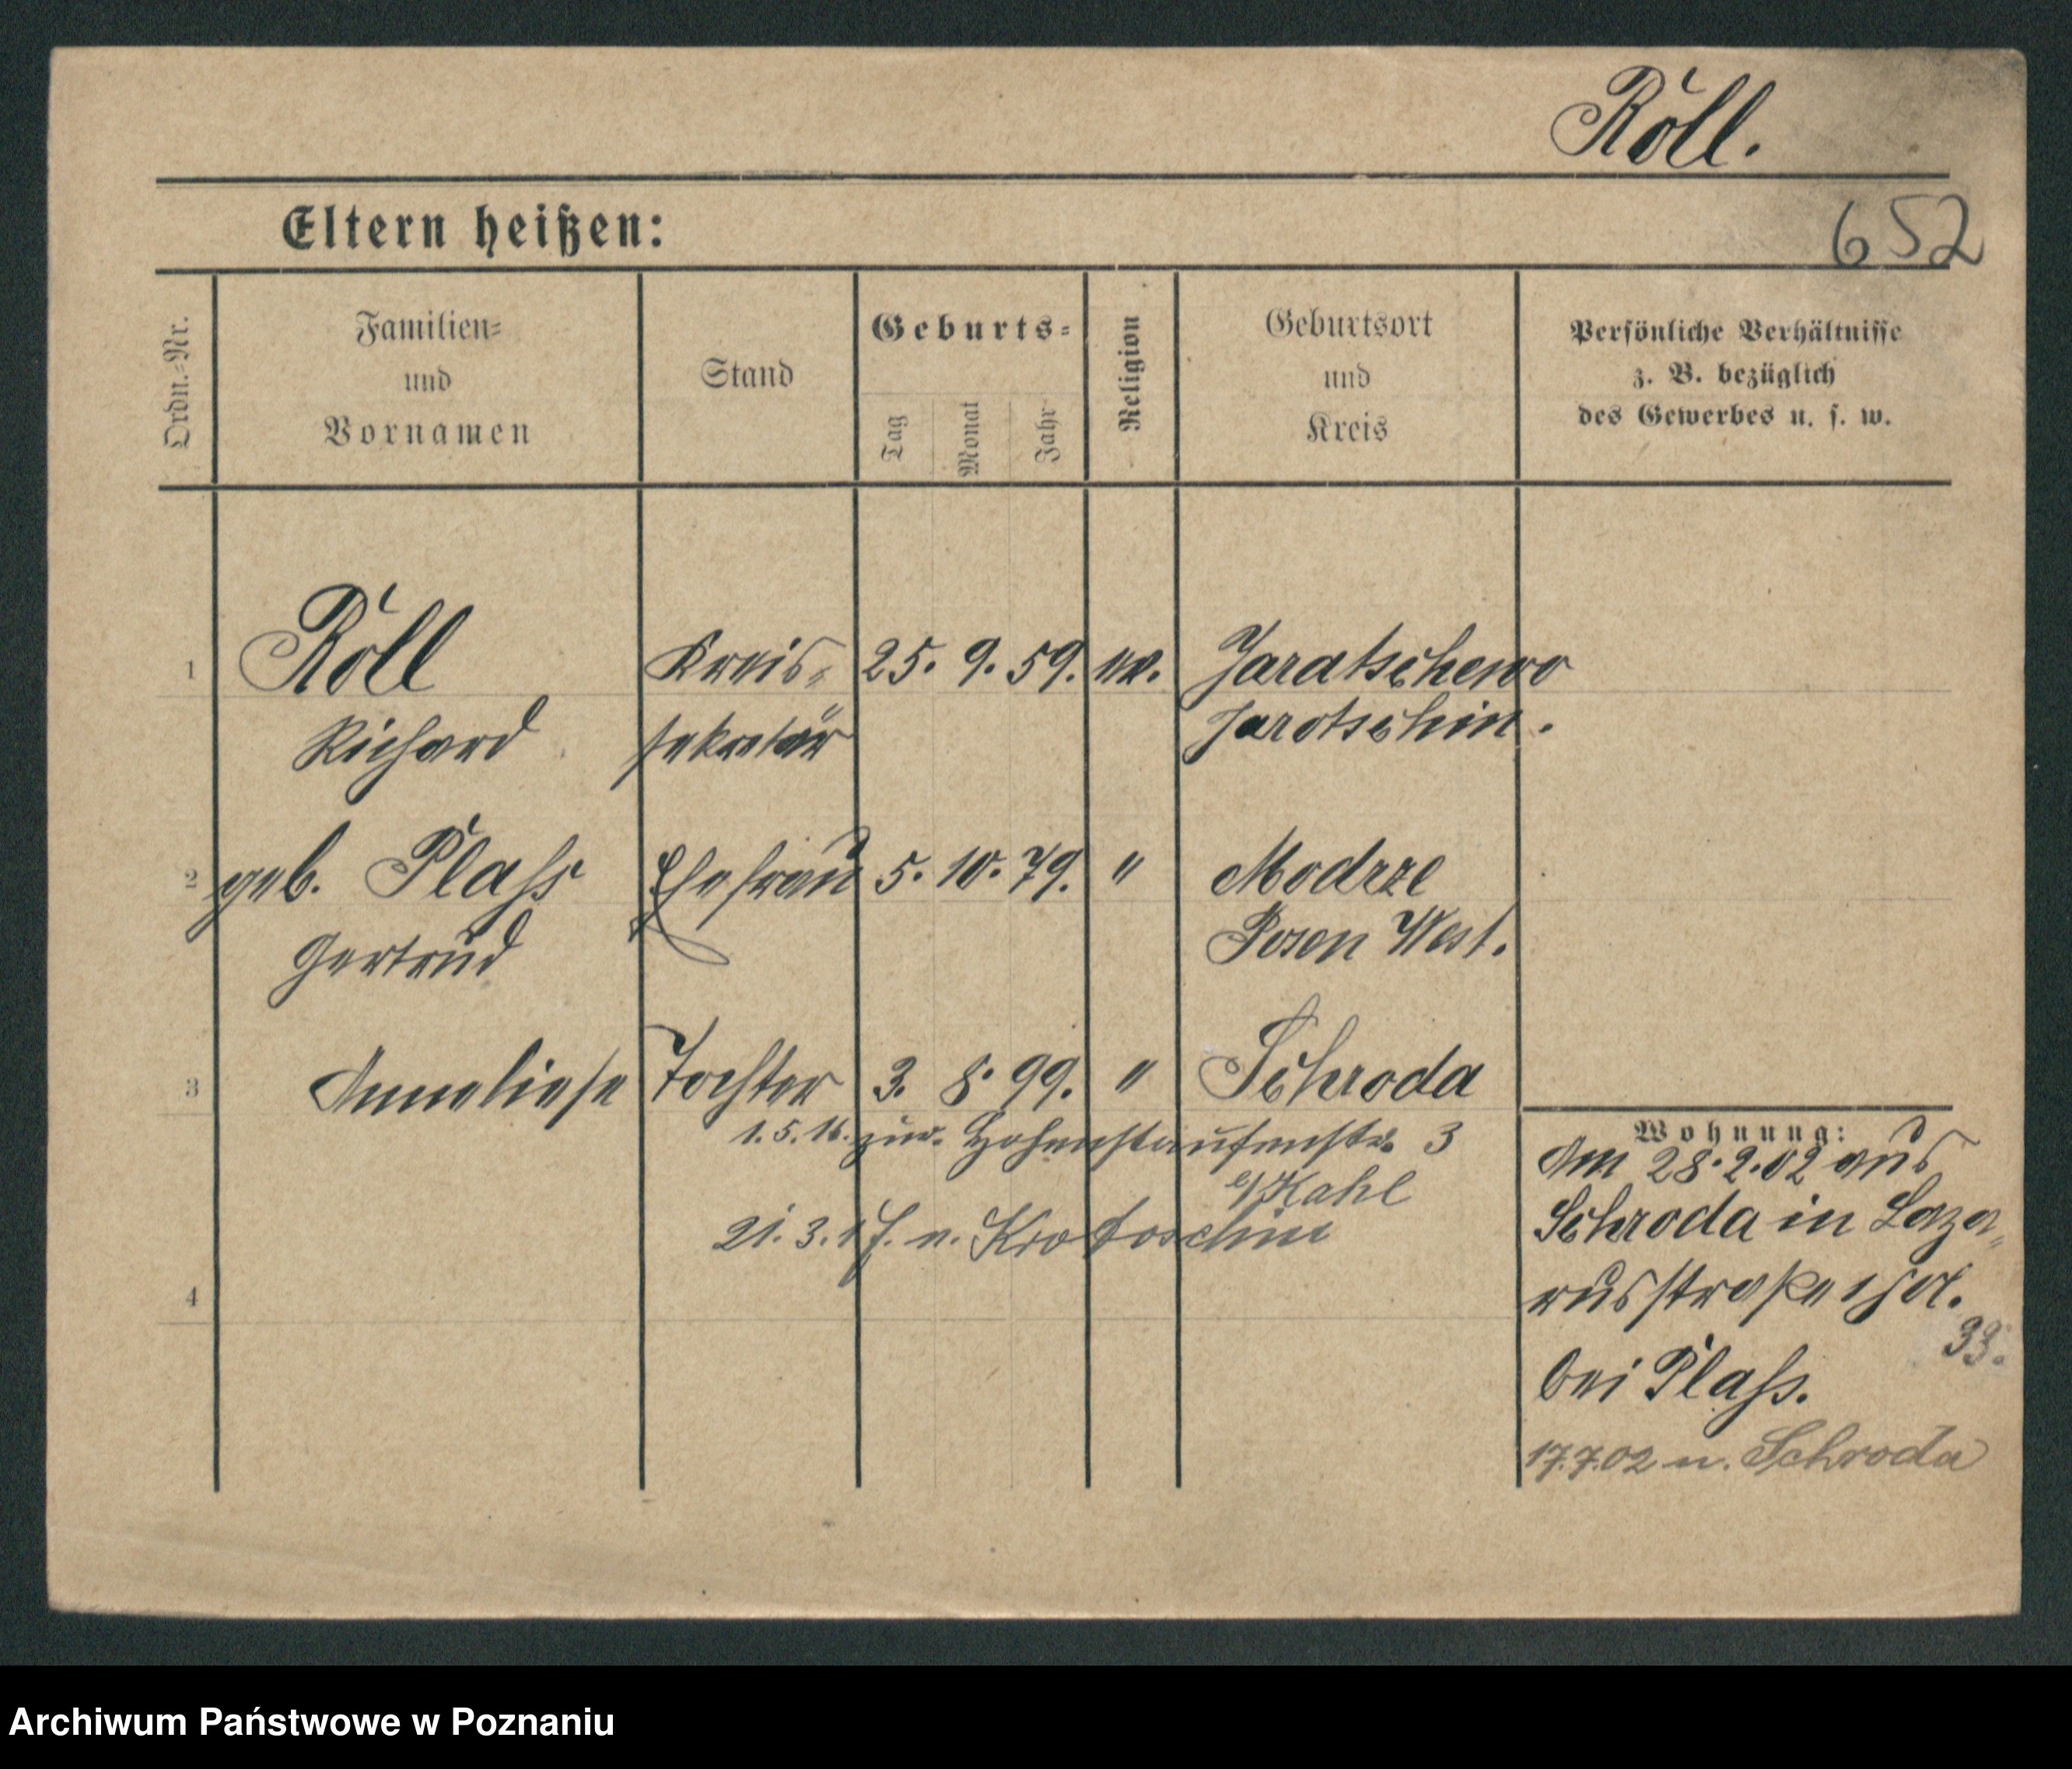 Röll.
652
Eltern heißen:
Ordn.-Nr.
Familien-
und
Vornamen
Stand
Geburts-
Tag
Monat
Jahr
Religion
Geburtsort
und
Kreis
Persönliche Verhältnisse
z. B. bezüglich
des Gewerbes u. s. w.
1 Röll Kreis- 25. 9. 59. ev. Jaratschewo
Richard sekretär Jarotschin.
2 geb. Plaß Ehefrau 5. 10. 79. " Modrze
Gertrud Posen West.
3 Anneliese Tochter 3. 8. 99. " Schroda
1. 5. 16. zur. Hohenstaufenstr. 3
b/Kahl
21. 3. 17. n. Krotoschin
4
Wohnung:
Am 28.2.02 aus
Schroda in Laza-
russtraße
33.
bei Plaß.
17.7.02 n. Schroda
Archiwum Państwowe w Poznaniu